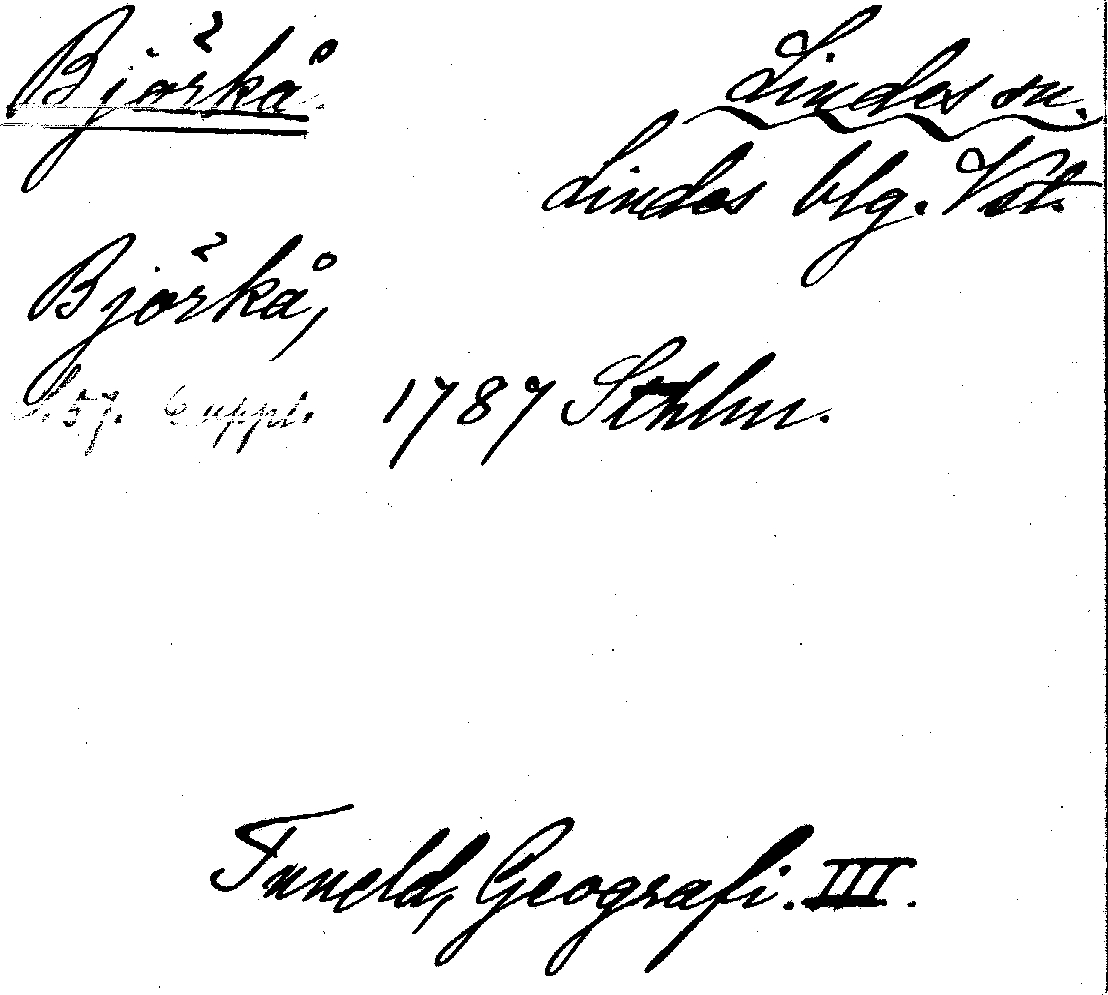 Björkå.
Lindes sn.
Lindes blg. Vstl.
Björkå,
S. 57. Suppl. 1787 Sthlm.
Tuneld, Geografi. III.